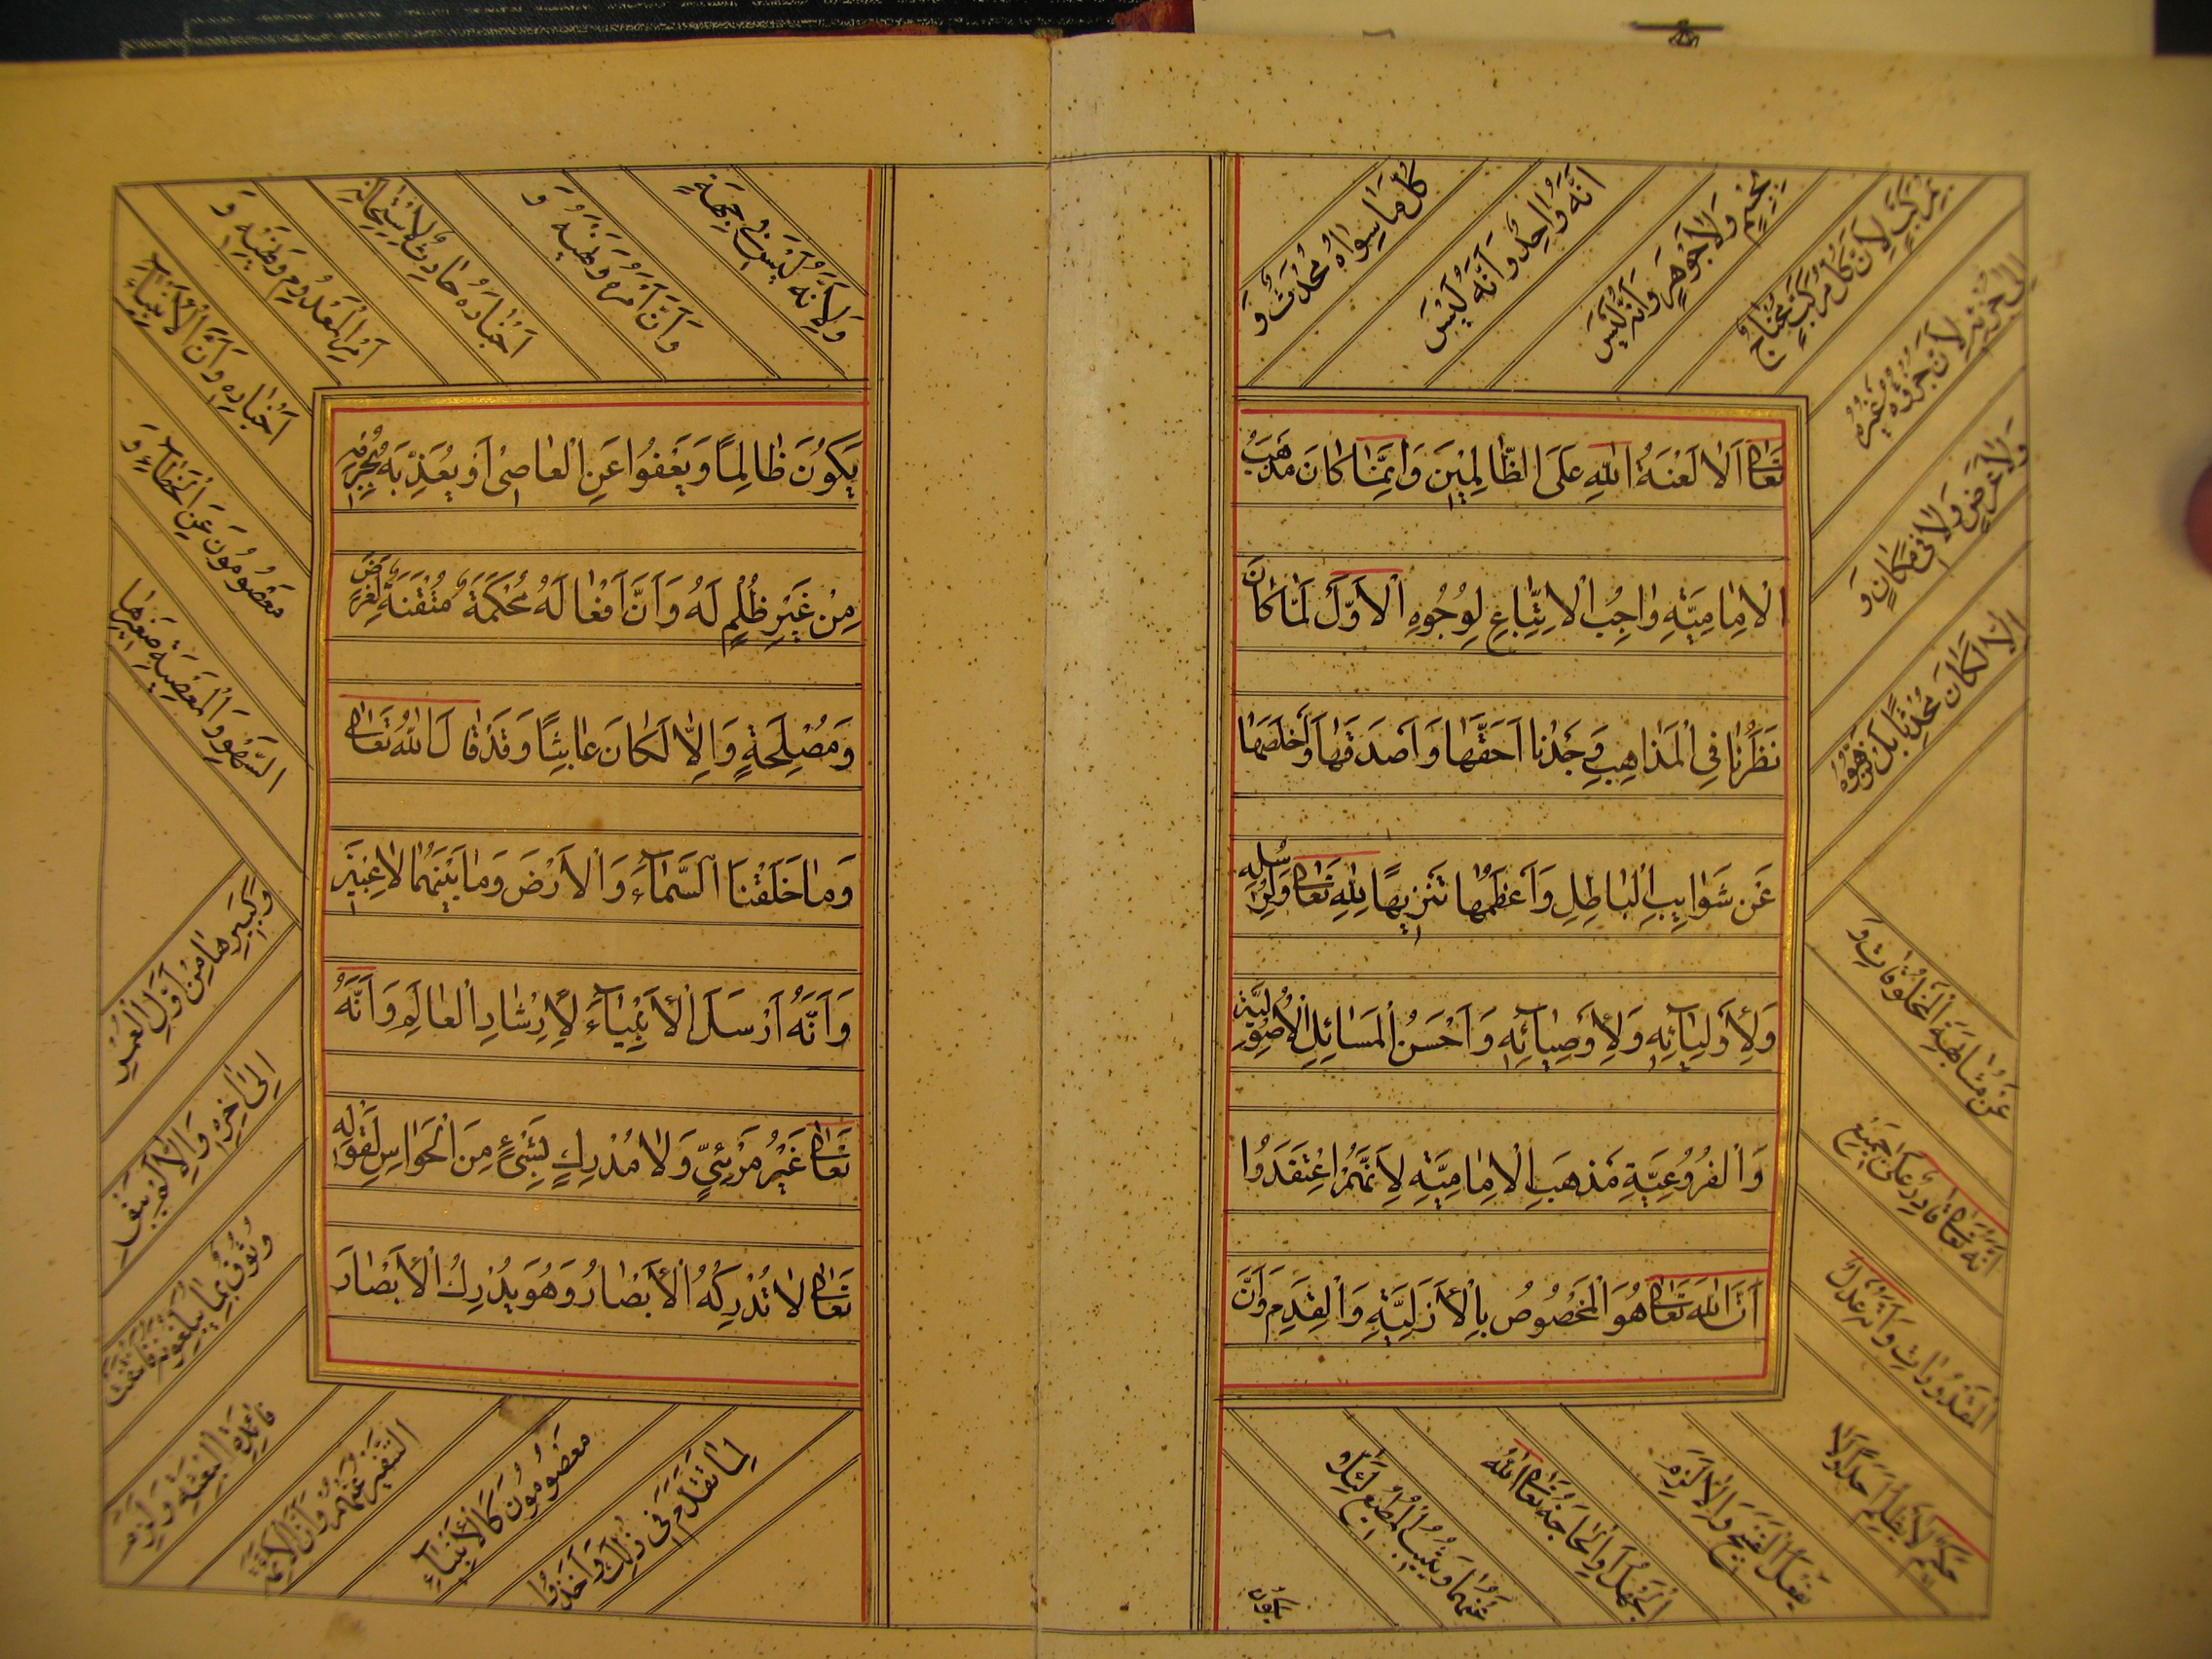 تَعَالٰى اَلٰا لَعْنَةُ اللّٰهِ عَلَى الظّٰالِمِيْنَ وَاِنَّمٰا كٰانَ مَذْهَبُ
الْاِمٰامِيَّةِ وٰاجِبُ الْاِتِّبٰاعِ لِوُجُوهٍ الْاَوَّلُ لَمّٰا كٰانَ
نَظَرْنٰا فِي الْمَذٰاهِبِ وَجَدْنٰا اَحَقَّهٰا وَاَصْدَقَهٰا وَاَخْلَصَهٰا
عَنْ شَوٰايِبِ الْبٰاطِلِ وَاَعْظَمُهٰا تَنْزِيهًا لِلّٰهِ تَعَالٰى وَلِرُسُلِهِ
وَلِاَوْلِيٰآئِهِ وَلِاَوْصِيٰآئِهِ وَاَحْسَنُ الْمَسٰائِلِ الْاُصُولِيَّةِ
وَالْفُرُوعِيَّةِ مَذْهَبَ الْاِمٰامِيَّةِ لِاَنَّهُمْ اعْتَقَدُوا
اَنَّ اللّٰهَ تَعَالٰى هُوَ الْمَخْصُوصُ بِالْاَزَلِيَّةِ وَالْقِدَمِ وَاَنَّ
كُلَّ مٰا سِوٰاهُ مُحْدَثٌ وَ
اَنَّهُ وٰاحِدٌ وَاَنَّهُ لَيْسَ
بِجِسْمٍ وَلٰا جَوْهَرٍ وَاَنَّهُ لَيْسَ
بِمُرَكَّبٍ لِاَنَّ كُلَّ مُرَكَّبٍ مُحْتٰاجٌ
اِلٰى جُزْئِهِ لِاَنَّ جُزْؤَهُ غَيْرُهُ
وَلٰا عَرَضٍ وَلٰا فِي مَكٰانٍ وَ
اِلّٰا لَكٰانَ مُحْدَثًا بَلْ نَزَّهُوهُ
عَنْ مُشٰابَهَةِ الْمَخْلُوقٰاتِ وَ
اَنَّهُ تَعَالٰى قٰادِرٌ عَلٰى جَمِيعِ
الْمَقْدُورٰاتِ وَاَنَّهُ عَدْلٌ
حَكِيمٌ لٰا يَظْلِمُ اَحَدًا وَلٰا
يَفْعَلُ الْقَبِيْحَ وَاِلّٰا لَزِمَ
الْجَهْلُ اَوِ الْحٰاجَةُ تَعَالَى اللّٰهُ
عَنْهُمٰا وَيُثِيبُ الْمُطِيعَ لِئَلّٰا
يكون
يَكُونَ ظٰالِمًا وَيَعْفُوا عَنِ الْعٰاصِي اَوْ يُعَذِّبَهُ بِجُرْمِهِ
مِنْ غَيْرِ ظُلْمٍ لَهُ وَاَنَّ اَفْعٰالَهُ مُحْكَمَةٌ مُتْقَنَةٌ لِغَرَضٍ
وَمَصْلِحَةٍ وَاِلّٰا لَكٰانَ عٰابِثًا وَقَدْ قٰالَ اللّٰهُ تَعَالٰى
وَمٰا خَلَقْنَا السَّمٰآءَ وَالْاَرْضَ وَمٰا بَيْنَهُمٰا لٰاعِبِيْنَ
وَاَنَّهُ اَرْسَلَ الْاَنْبِيٰآءَ لِاِرْشٰادِ الْعٰالَمِ وَاَنَّهُ
تَعَالٰى غَيْرُ مَرْئِيٍّ وَلٰا مُدْرِكٍ بِشَيْءٍ مِنَ الْحَوٰاسِ لِقَوْلِهِ
تَعَالٰى لٰا تُدْرِكُهُ الْاَبْصٰارُ وَهُوَ يُدْرِكُ الْاَبْصٰارَ
وَلِاَنَّهُ لَيْسَ فِي جِهَةٍ
وَاَنَّ اَمْرَهُ وَنَهْيَهُ وَ
اَخْبٰارَهُ حٰادِثٌ لِاِسْتِحٰالَةِ
اَمْرِ الْمَعْدُومِ وَنَهْيِهِ وَ
اَخْبٰارِهِ وَاَنَّ الْاَنْبِيٰآءَ
مَعْصُومُونَ عَنِ الْخَطٰآءِ وَ
السَّهْوِ وَالْمَعْصِيَةِ صَغِيرِهٰا
وَكَبِيرِهٰا مِنْ اَوَّلِ الْعُمْرِ
اِلٰى اٰخِرِهِ وَاِلّٰا لَمْ يَبْقَ
وُثُوقٌ بِمٰا يُبَلِّغُونَهُ فَانْتَفَتْ
فٰائِدَةُ الْبِعْثَةِ وَلَزِمَ
التَّنْفِيرُ عَنْهُمْ وَاَنَّ الْاَئِمَّةَ
مَعْصُومُونَ كَالْاَنْبِيٰآءِ
لِمٰا تَقَدَّمَ فِي ذٰلِكَ وَاَخَذُوا